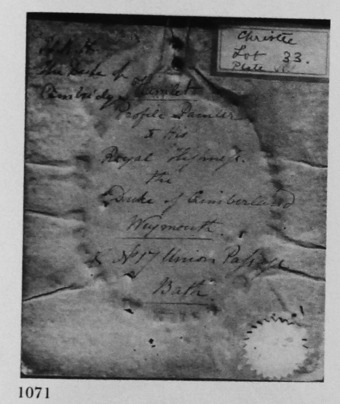 Christie
Lot 33.
Plate
the Duke of
Cambridge
Hamlet
Profile Painter
to His
Royal Highness
the
Duke of Cumberland
Weymouth.
& No 17 Union Passage
Bath.
1071